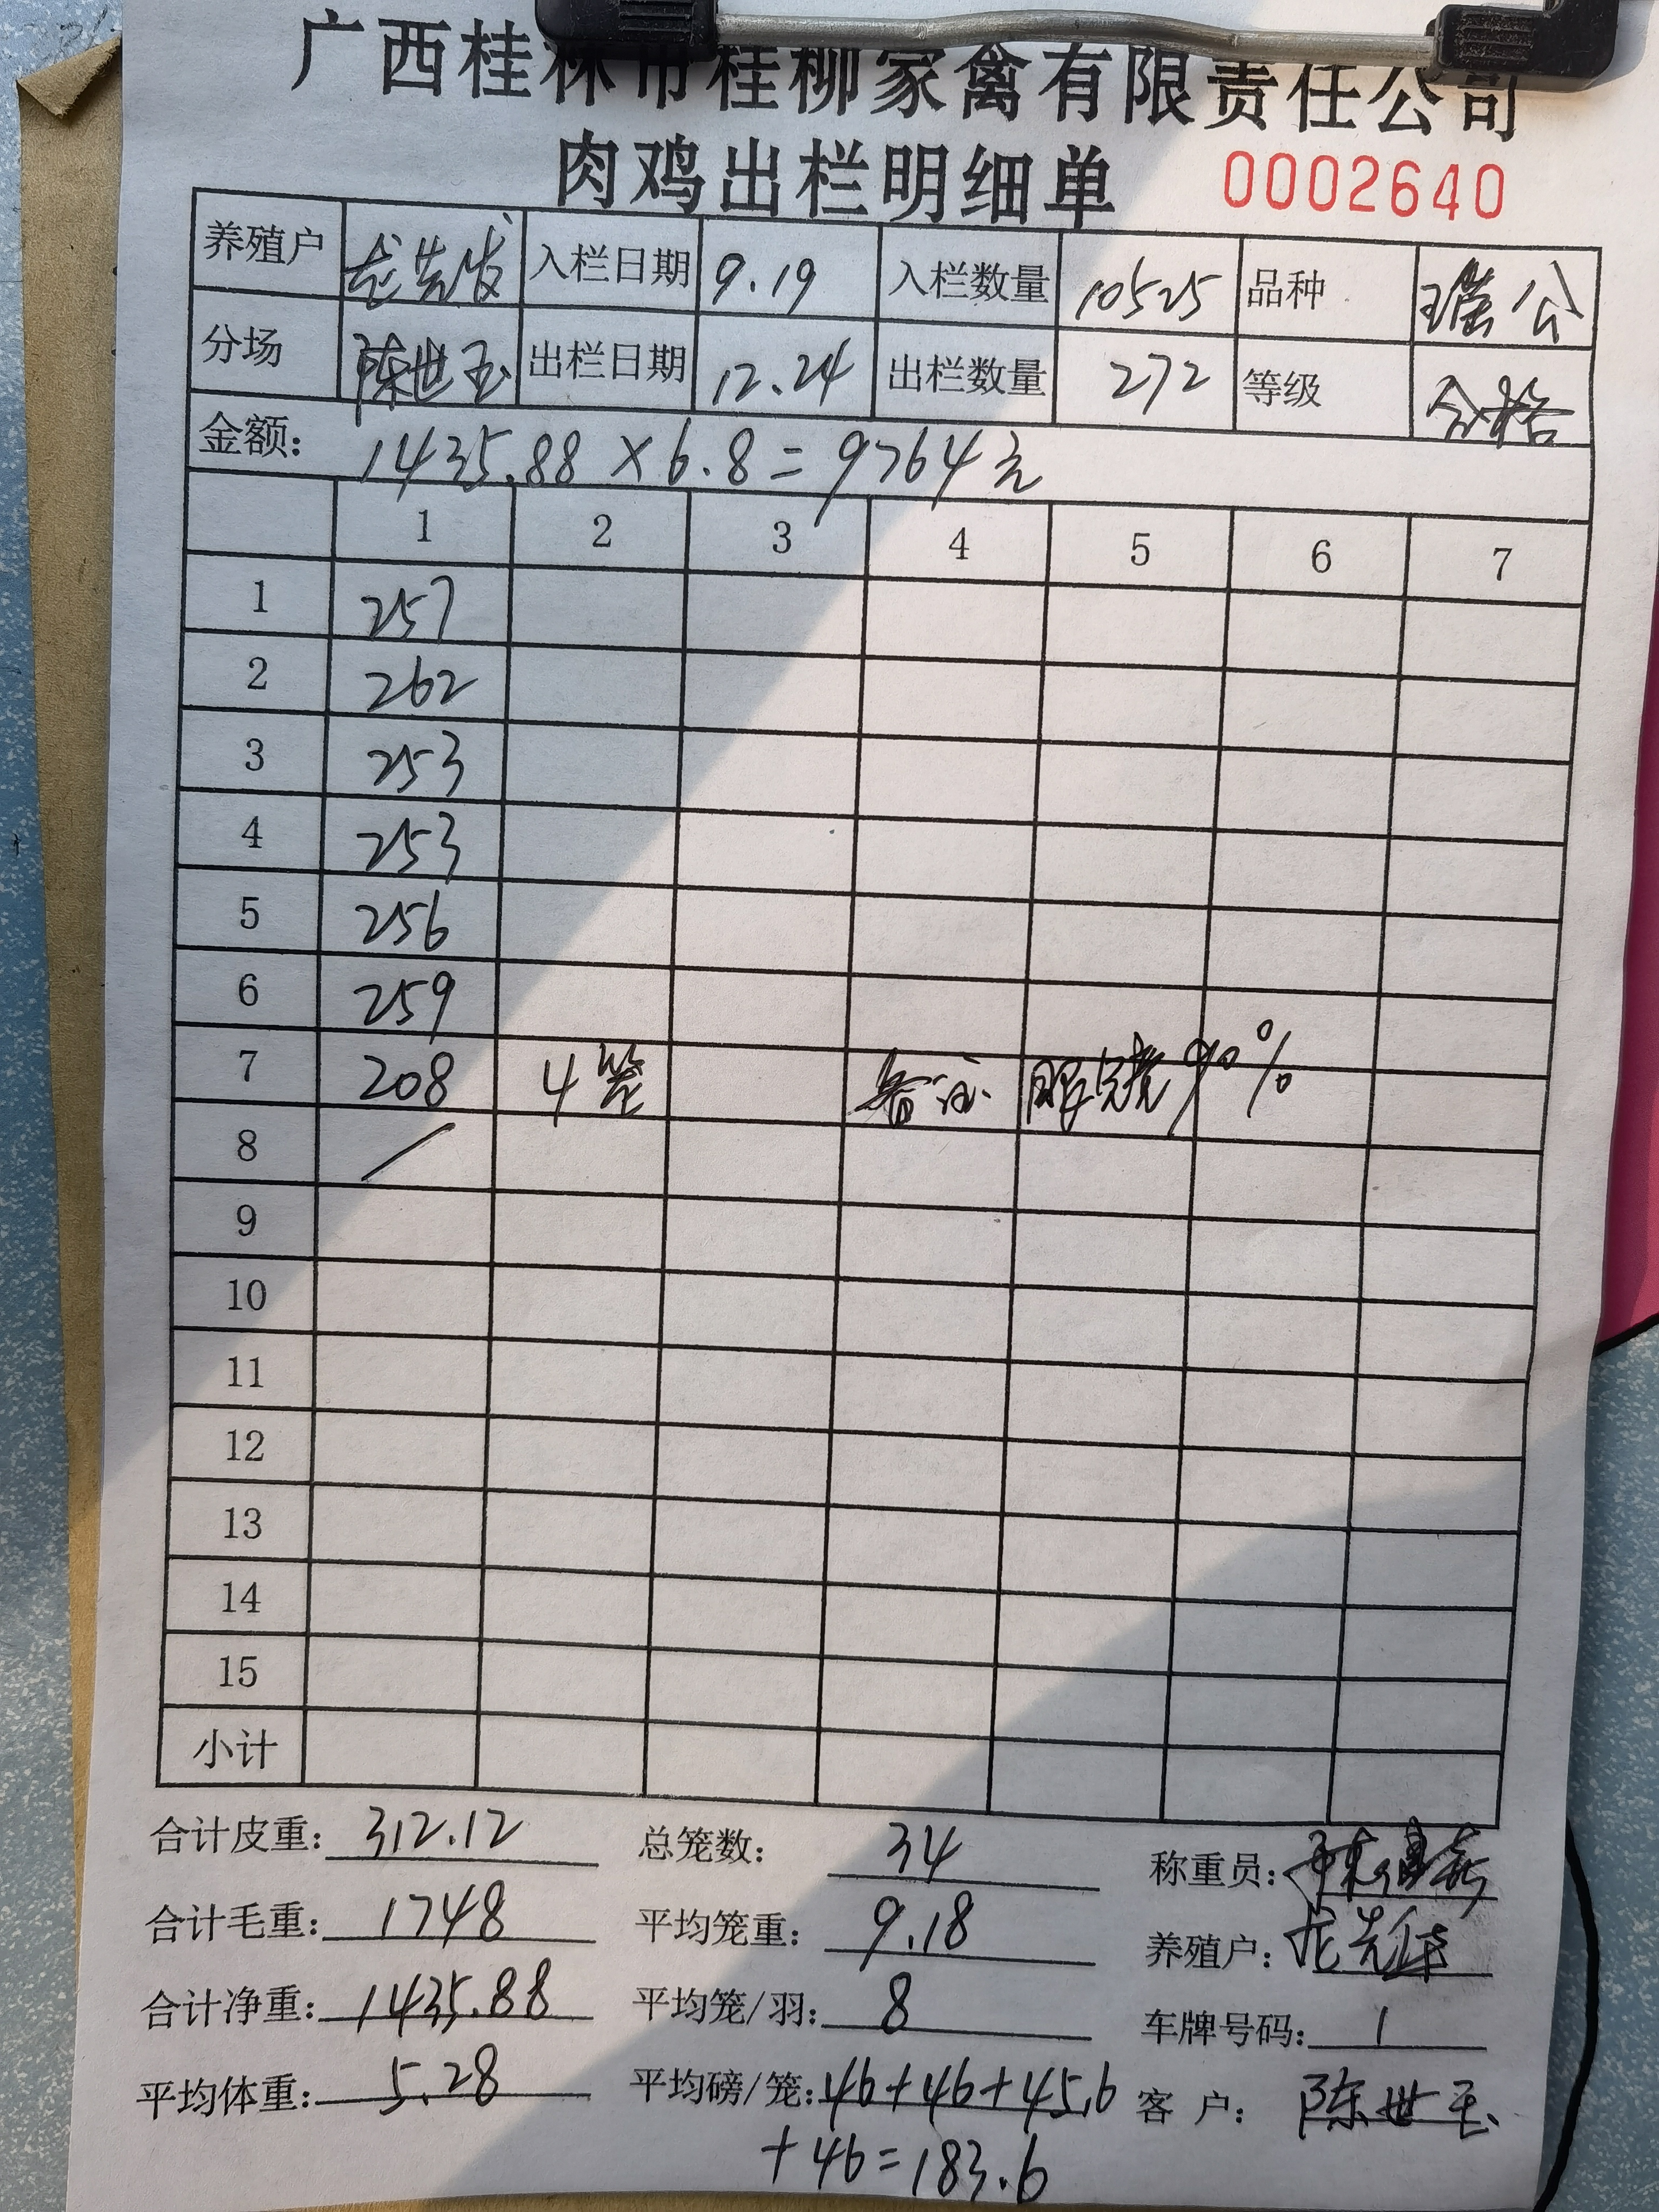 广西桂林市桂柳家禽有限责任公司
肉鸡出栏明细单 0002640
养殖户 龙先发 入栏日期 9.19 入栏数量 10525 品种 瑶公
分场 陈世玉 出栏日期 12.24 出栏数量 272 等级 合格
金额: 1435.88×6.8=9764元
1 2 3 4 5 6 7
1 257
2 262
3 253
4 253
5 256
6 259
7 208 4笼 备注 眼烧90%
8 /
9
10
11
12
13
14
15
小计
合计皮重: 312.12 总笼数: 34 称重员:
合计毛重: 1748 平均笼重: 9.18 养殖户: 龙先
合计净重: 1435.88 平均笼/羽: 8 车牌号码: 1
平均体重: 5.28 平均磅/笼: 46+46+45.6 客户: 陈世玉
+46=183.6